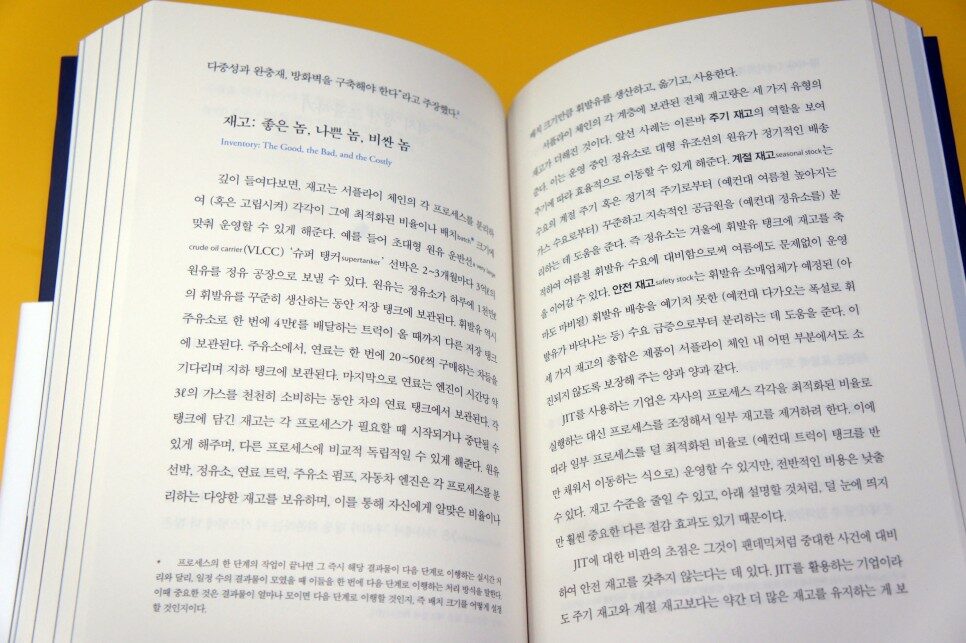 다중성과 완충재, 방화벽을 구축해야 한다”라고 주장했다.²
재고: 좋은 놈, 나쁜 놈, 비싼 놈
Inventory: The Good, the Bad, and the Costly
깊이 들여다보면, 재고는 서플라이 체인의 각 프로세스를 분리하
여 (혹은 고립시켜) 각각이 그에 최적화된 비율이나 배치batch* 크기에
맞춰 운영할 수 있게 해준다. 예를 들어 초대형 원유 운반선a very large
crude oil carrier(VLCC) ‘슈퍼 탱커supertanker’ 선박은 2~3개월마다 3억ℓ의
원유를 정유 공장으로 보낼 수 있다. 원유는 정유소가 하루에 1천만ℓ
의 휘발유를 꾸준히 생산하는 동안 저장 탱크에 보관된다. 휘발유 역시
주유소로 한 번에 4만ℓ를 배달하는 트럭이 올 때까지 다른 저장 탱크
에 보관된다. 주유소에서, 연료는 한 번에 20~50ℓ씩 구매하는 차들을
기다리며 지하 탱크에 보관된다. 마지막으로 연료는 엔진이 시간당 약
3ℓ의 가스를 천천히 소비하는 동안 차의 연료 탱크에서 보관된다. 각
탱크에 담긴 재고는 각 프로세스가 필요할 때 시작되거나 중단될 수
있게 해주며, 다른 프로세스에 비교적 독립적일 수 있게 해준다. 원유
선박, 정유소, 연료 트럭, 주유소 펌프, 자동차 엔진은 각 프로세스를 분
리하는 다양한 재고를 보유하며, 이를 통해 자신에게 알맞은 비율이나
* 프로세스의 한 단계의 작업이 끝나면 그 즉시 해당 결과물이 다음 단계로 이행하는 실시간 처
리와 달리, 일정 수의 결과물이 모였을 때 이들을 한 번에 다음 단계로 이행하는 처리 방식을 말한다.
이때 중요한 것은 결과물이 얼마나 모이면 다음 단계로 이행할 것인지, 즉 배치 크기를 어떻게 설정
할 것인지이다.
배치 크기만큼 휘발유를 생산하고, 옮기고, 사용한다.
서플라이 체인의 각 계층에 보관된 전체 재고량은 세 가지 유형의
재고가 더해진 것이다. 앞선 사례는 이른바 주기 재고의 역할을 보여
준다. 이는 운영 중인 정유소로 대형 유조선의 원유가 정기적인 배송
주기에 따라 효율적으로 이동할 수 있게 해준다. 계절 재고seasonal stock는
수요의 계절 주기 혹은 정기적 주기로부터 (예컨대 여름철 높아지는
가스 수요로부터) 꾸준하고 지속적인 공급원을 (예컨대 정유소를) 분
리하는 데 도움을 준다. 즉 정유소는 겨울에 휘발유 탱크에 재고를 축
적하여 여름철 휘발유 수요에 대비함으로써 여름에도 문제없이 운영
을 이어갈 수 있다. 안전 재고safety stock는 휘발유 소매업체가 예정된 (아
마도 마비될) 휘발유 배송을 예기치 못한 (예컨대 다가오는 폭설로 휘
발유가 바닥나는 등) 수요 급증으로부터 분리하는 데 도움을 준다. 이
세 가지 재고의 총합은 제품이 서플라이 체인 내 어떤 부분에서도 소
진되지 않도록 보장해 주는 양과 양과 같다.
JIT를 사용하는 기업은 자사의 프로세스 각각을 최적화된 비율로
실행하는 대신 프로세스를 조정해서 일부 재고를 제거하려 한다. 이에
따라 일부 프로세스를 덜 최적화된 비율로 (예컨대 트럭이 탱크를 반
만 채워서 이동하는 식으로) 운영할 수 있지만, 전반적인 비용은 낮출
수 있다. 재고 수준을 줄일 수 있고, 아래 설명할 것처럼, 덜 눈에 띄지
만 훨씬 중요한 다른 절감 효과도 있기 때문이다.
JIT에 대한 비판의 초점은 그것이 팬데믹처럼 중대한 사건에 대비
하여 안전 재고를 갖추지 않는다는 데 있다. JIT를 활용하는 기업이라
도 주기 재고와 계절 재고보다는 약간 더 많은 재고를 유지하는 게 보